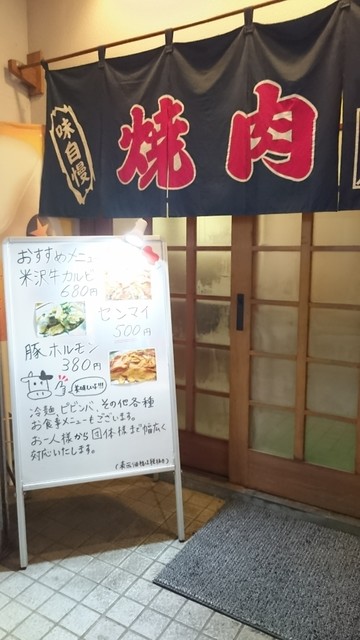 味自慢
焼肉
おすすめメニュー
米沢牛カルビ
680円
センマイ
500円
豚ホルモン
380円
美味しい!!!
冷麺、ビビンバ、その他各種
お食事メニューもございます。
お一人様から団体様まで幅広く
対応いたします。